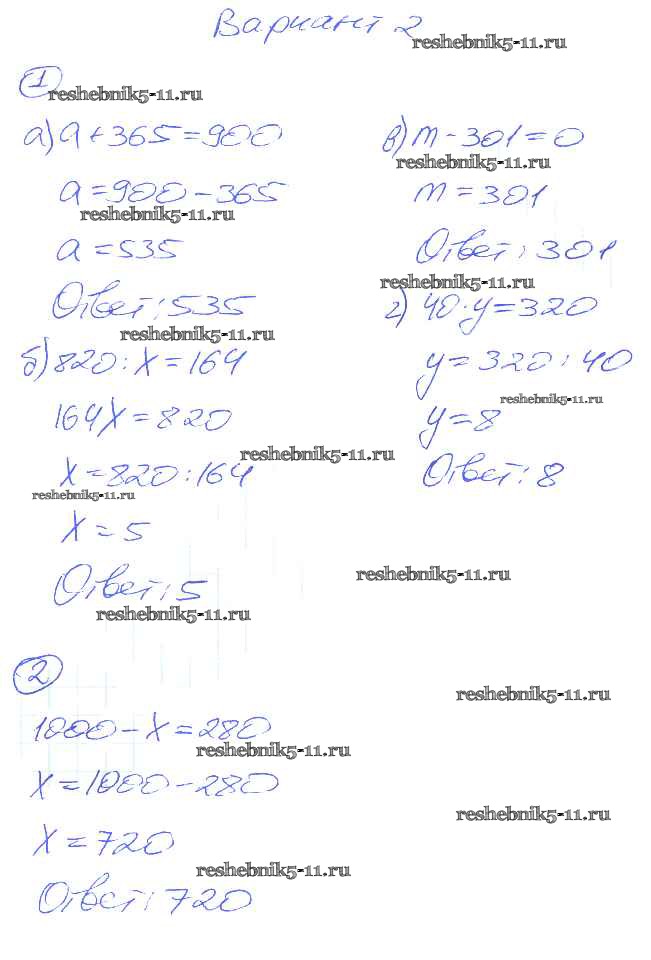 Вариант 2
reshebnik5-11.ru
1
reshebnik5-11.ru
а) a + 365 = 900
a = 900 - 365
reshebnik5-11.ru
a = 535
Ответ: 535
reshebnik5-11.ru
б) 820 : x = 164
164x = 820
reshebnik5-11.ru
x = 820 : 164
reshebnik5-11.ru
x = 5
Ответ: 5
reshebnik5-11.ru
в) m - 301 = 0
reshebnik5-11.ru
m = 301
Ответ: 301
reshebnik5-11.ru
г) 40 · y = 320
y = 320 : 40
reshebnik5-11.ru
y = 8
Ответ: 8
reshebnik5-11.ru
2
reshebnik5-11.ru
1000 - x = 280
reshebnik5-11.ru
x = 1000 - 280
reshebnik5-11.ru
x = 720
reshebnik5-11.ru
Ответ: 720